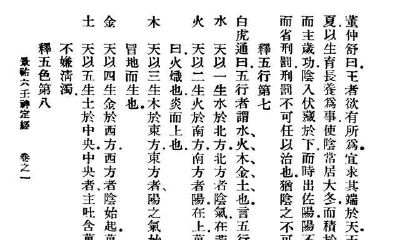 董仲舒曰王者欲有所為宜求其端於天天
夏以生育長養為事陰常居大冬而積於
而主歲功陰入伏藏於下而時出佐陽陽不
而省刑罰刑罰不可任以治也猶陰之不可
釋五行第七
白虎通曰五行者謂水、火、木、金、土也言五行
水　天以一生水於北方北方者陰氣在
火　天以二生火於南方南方者陽在上
曰火熾也炎而上也
木　天以三生木於東方東方者、陽之氣始
冒地而生也
金　天以四生金於西方西方者陰始起
土　天以五生土於中央中央者、主吐含萬
不嫌清濁
釋五色第八
景祐六壬神定經　卷之一